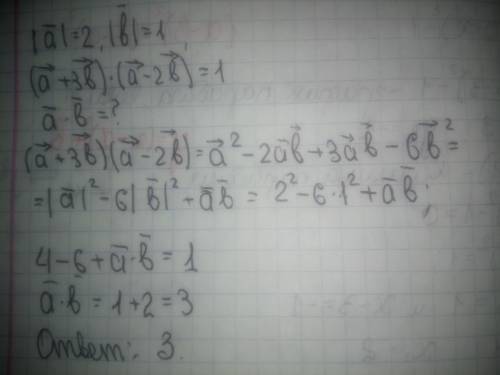 |a̅|=2, |b̅|=1,
(a⃗+3b⃗)·(a⃗-2b⃗)=1
a̅·b̅=?
(a⃗+3b⃗)(a⃗-2b⃗)=a⃗²-2a⃗b⃗+3a⃗b⃗-6b⃗²=
=|a̅|²-6|b̅|²+a̅b̅=2²-6·1²+a̅b̅;
4-6+a̅·b̅=1
a̅·b̅=1+2=3
Ответ: 3.